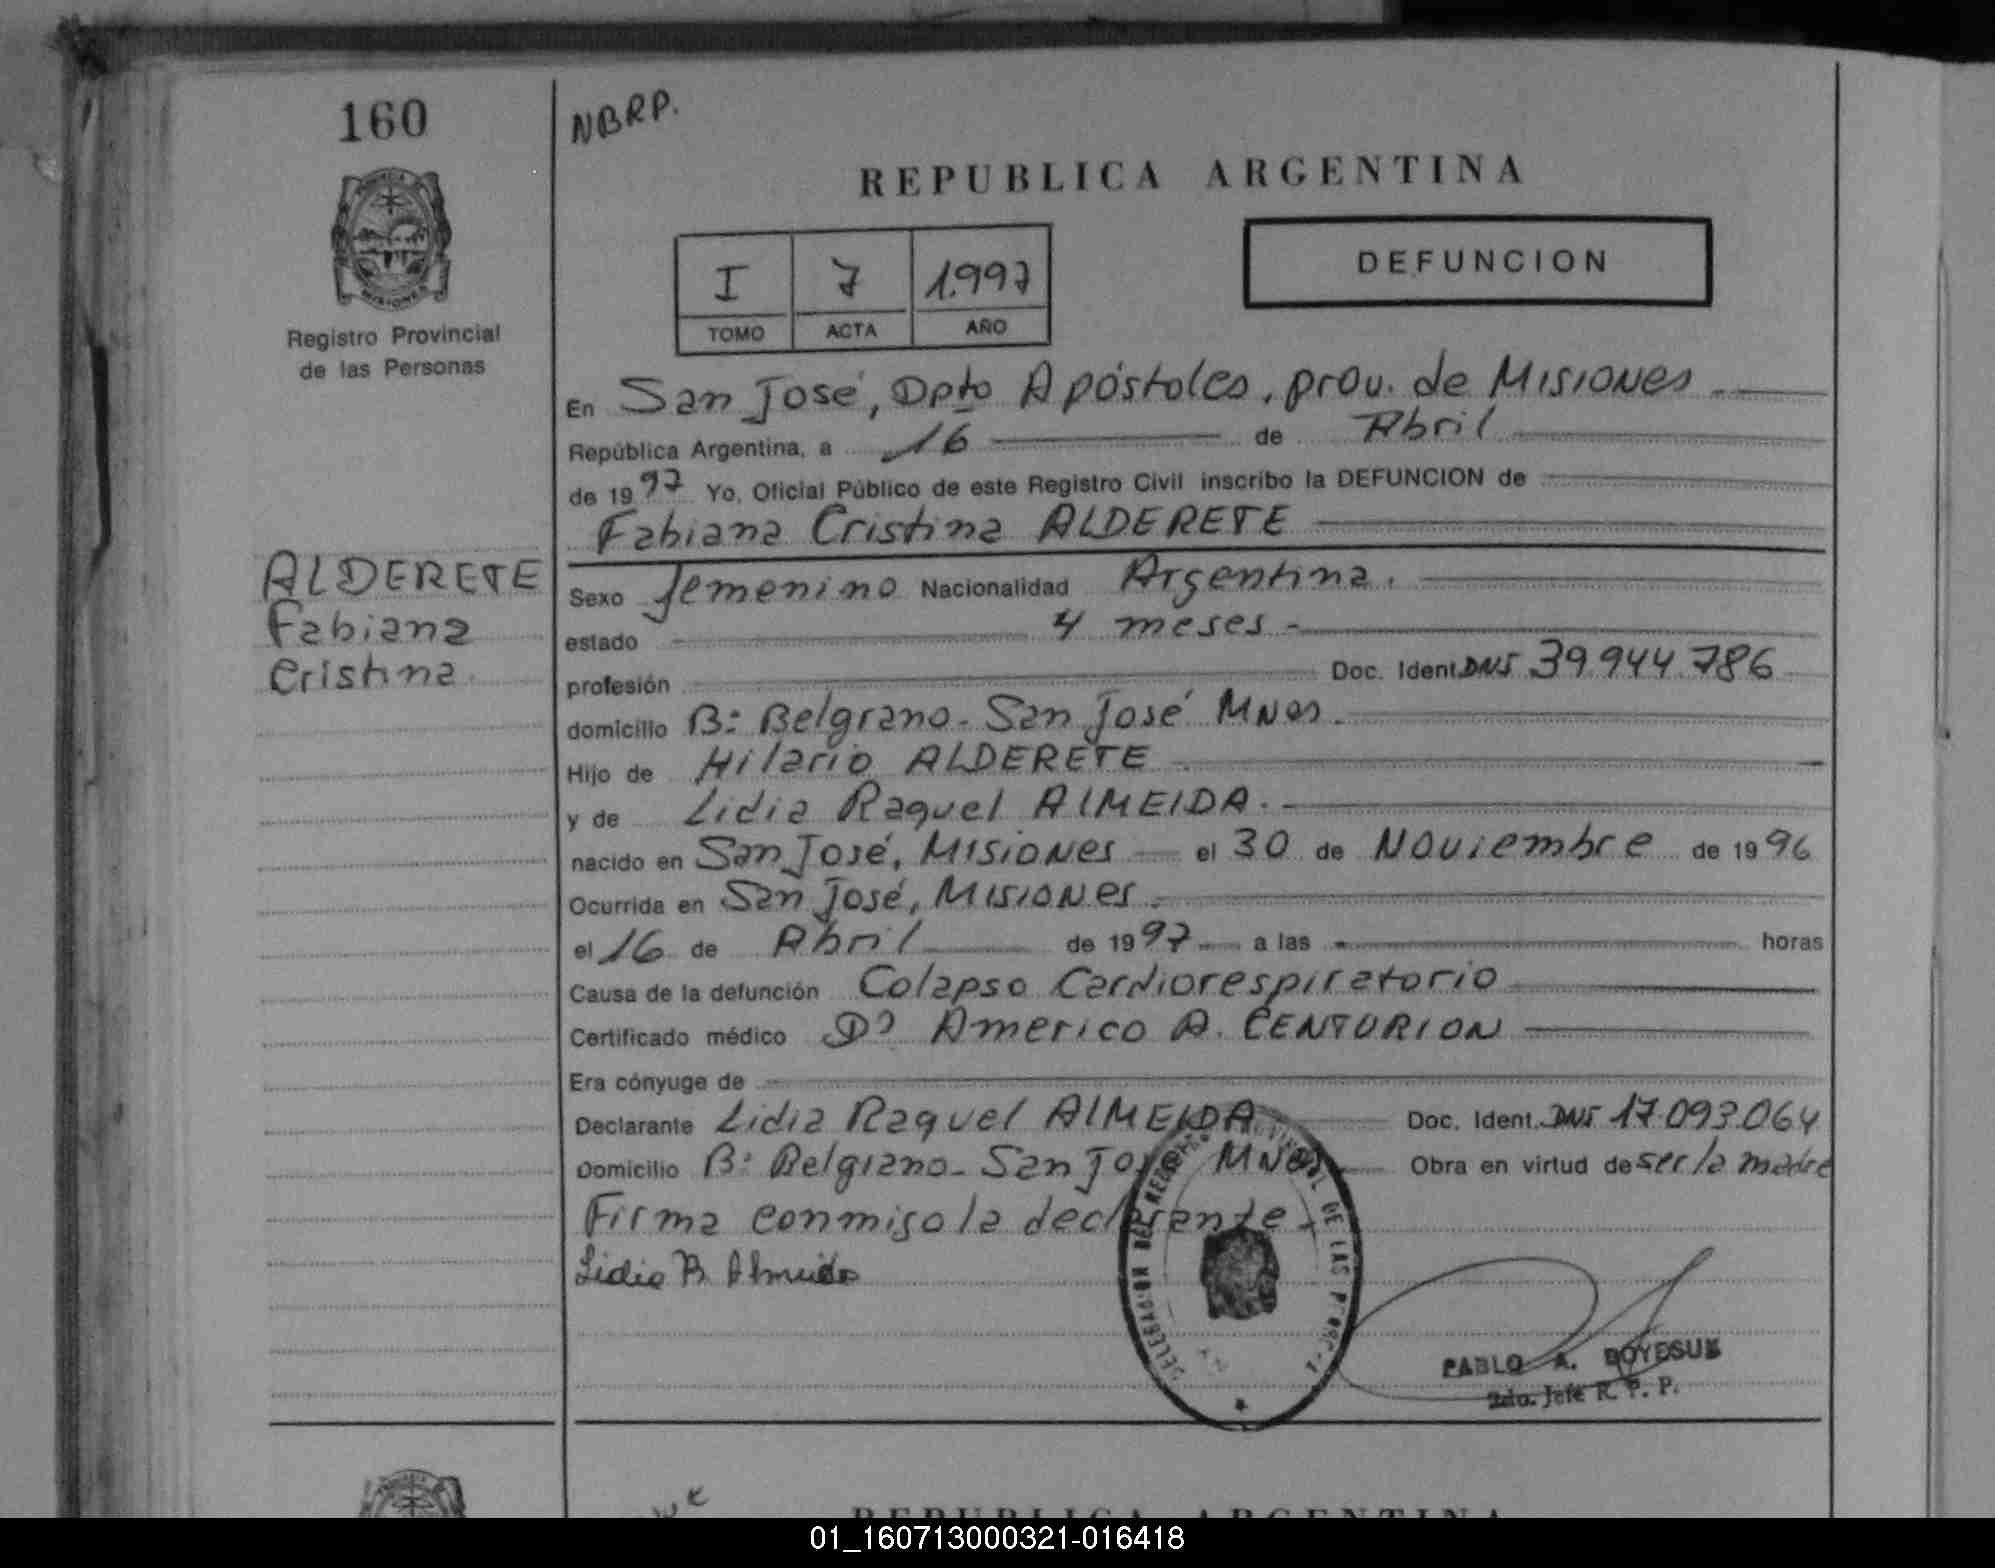 160
NBRP.
REPUBLICA ARGENTINA
I 7 1.997
TOMO ACTA AÑO
DEFUNCION
MISIONES
Registro Provincial
de las Personas
En San José, Dpto Apóstoles, prov. de Misiones
República Argentina, a 16 de Abril
de 1997 Yo, Oficial Público de este Registro Civil inscribo la DEFUNCION de
Fabiana Cristina ALDERETE
ALDERETE
Fabiana
Cristina
Sexo femenino Nacionalidad Argentina.
estado 4 meses -
profesión Doc. Ident. DNI 39.944.786
domicilio B: Belgrano - San José Mnes.
Hijo de Hilario ALDERETE
y de Lidia Raquel ALMEIDA.
nacido en San José, Misiones el 30 de Noviembre de 1996
Ocurrida en San José, Misiones.
el 16 de Abril de 1997 a las horas
Causa de la defunción Colapso Cardiorespiratorio
Certificado médico Dr Americo A. CENTURION
Era cónyuge de
Declarante Lidia Raquel ALMEIDA Doc. Ident. DNI 17.093.064
Domicilio B: Belgrano - San José Mnes. Obra en virtud de ser la madre
Firma conmigo la declarante
Lidia R. Almeida
DELEGACION DEL REGISTRO DE LAS
PABLO A. BOYESUK
2do. Jefe R. P. P.
REPUBLICA ARGENTINA
01_160713000321-016418